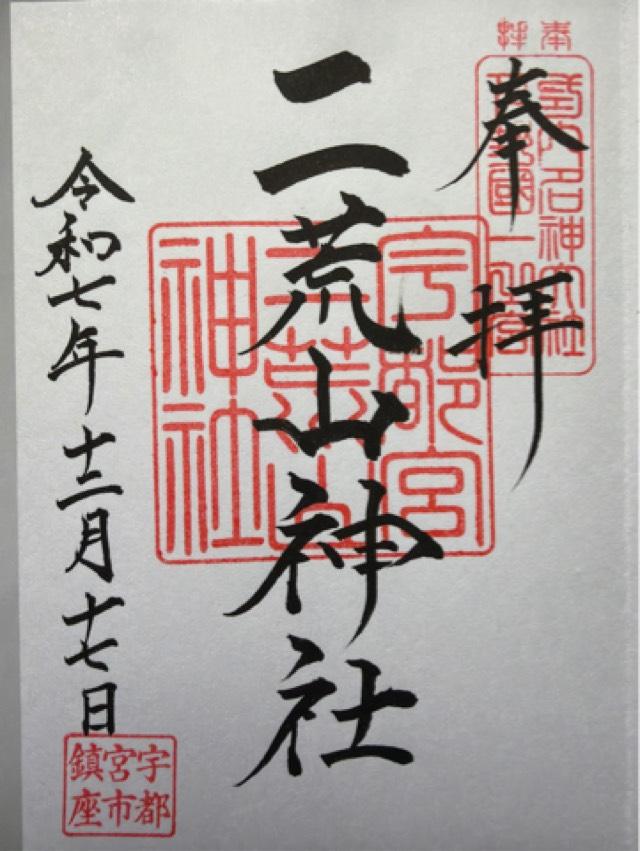 奉拝
奉拝
式内名神大社
下野國一之宮
二荒山神社
宇都宮
二荒山
神社
令和七年十二月十七日
宇都
宮市
鎮座